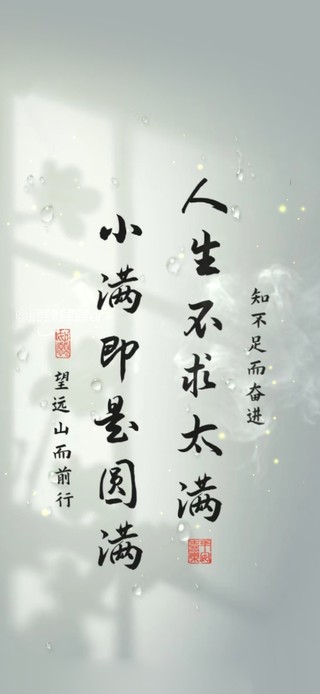 知不足而奋进
人生不求太满
小满即是圆满
望远山而前行